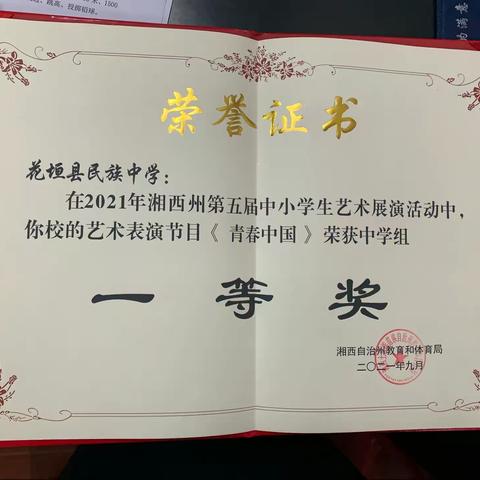 1500
跳高、投掷铅球。
为满意
荣誉证书
花垣县民族中学：
在2021年湘西州第五届中小学生艺术展演活动中，
你校的艺术表演节目《 青春中国 》荣获中学组
一等奖
湘西自治州教育和体育局
二〇二一年九月